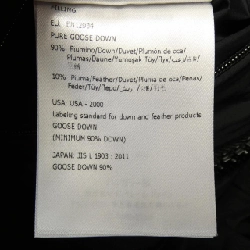 FILLING
E.U. EN 12934
PURE GOOSE DOWN
90% Piumino/Down/Duvet/Plumón de oca/
Plumas/Daune/
10% Piuma/Feather/Duvet/Pluma de oca/Penas/
Feder/Tüy/
USA USA - 2000
Labeling standard for down and feather products
GOOSE DOWN
(MINIMUM 90% DOWN)
JAPAN: JIS L 1903 : 2011
GOOSE DOWN 90%